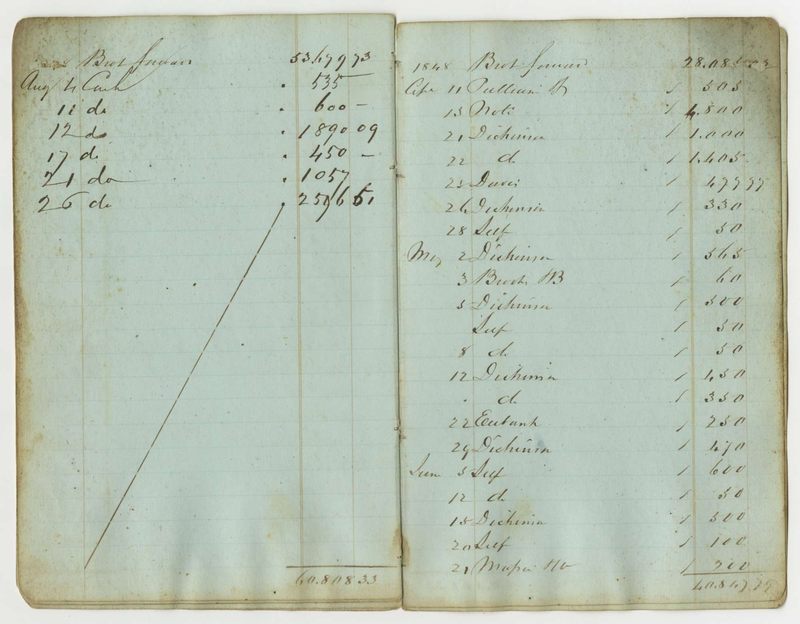 Brot forward 53679 73
Aug 4 Cash 535
11 do 600 –
12 do 1890 09
17 do 450 –
21 do 1057
26 do
60.808 33
1848 Brot forward
11 Pulliam 505
15 Note 4.800
21 Dickinson 1 1.000
22 do 1 1.405
25 Davis 1
26 Dickinson 1 330
28 Self 1 50
May 2 Dickinson 1 565
3 1 60
5 Dickinson 1 500
Self 1 50
8 do 1 50
12 Dickinson 1 450
" do 1 350
22 Eubank 1 250
29 Dickinson 1 470
June 5 Self 1 600
12 do 1 50
15 Dickinson 1 500
20 Self 1 100
21 1